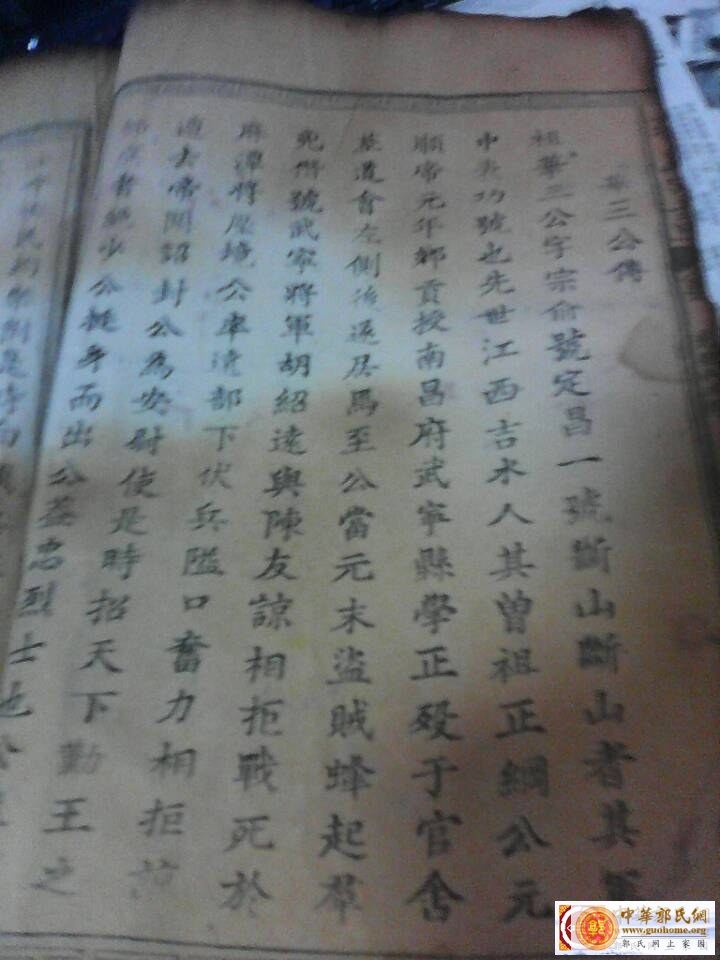 華三公傳
祖華三公字宗俞號定昌一號斷山斷山者其軍
中表功號也先世江西吉水人其曾祖正綱公元
順帝元年鄉貢授南昌府武寜縣學正殁于官舍
葬道會左側後遂居焉至公當元末盜賊蜂起羣
兇僭號武寜將軍胡紹遠與陳友諒相拒戰死於
麻潭將壓境公率遠部下伏兵隘口奮力相拒諒
遁去帝聞詔封公為安尉使是時招天下勤王之
師應者絶少公挺身而出公蓋忠烈士也
中華郭氏網
www.guohome.org
郭氏網上家園